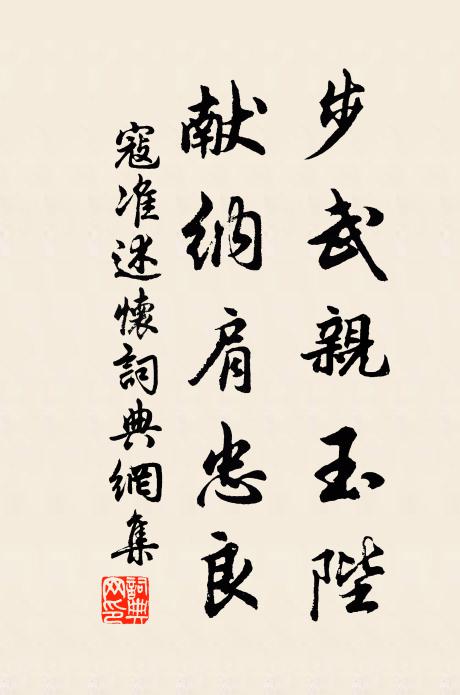 步武親玉陛
献纳肩忠良
寇准述懷詞典網集
詞典网印